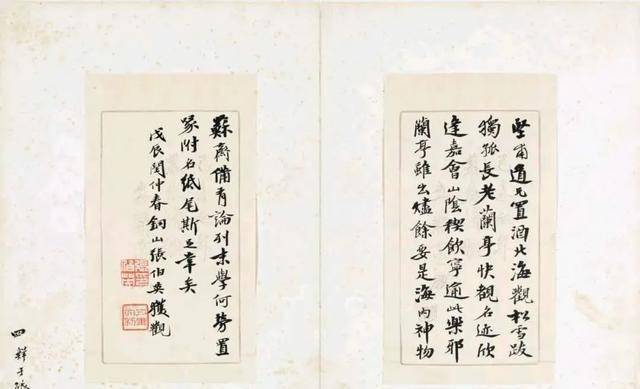 堅甫道兄置酒北海觀松雪跋
獨孤長老蘭亭快觀名迹欣
逢嘉會山陰禊飲寧逾此樂邪
蘭亭雖出燼餘要是海内神物
蘇齋備有論列末學何勞置
喙附名紙尾斯至幸矣
戊辰閏仲春銅山張伯英獲觀
四